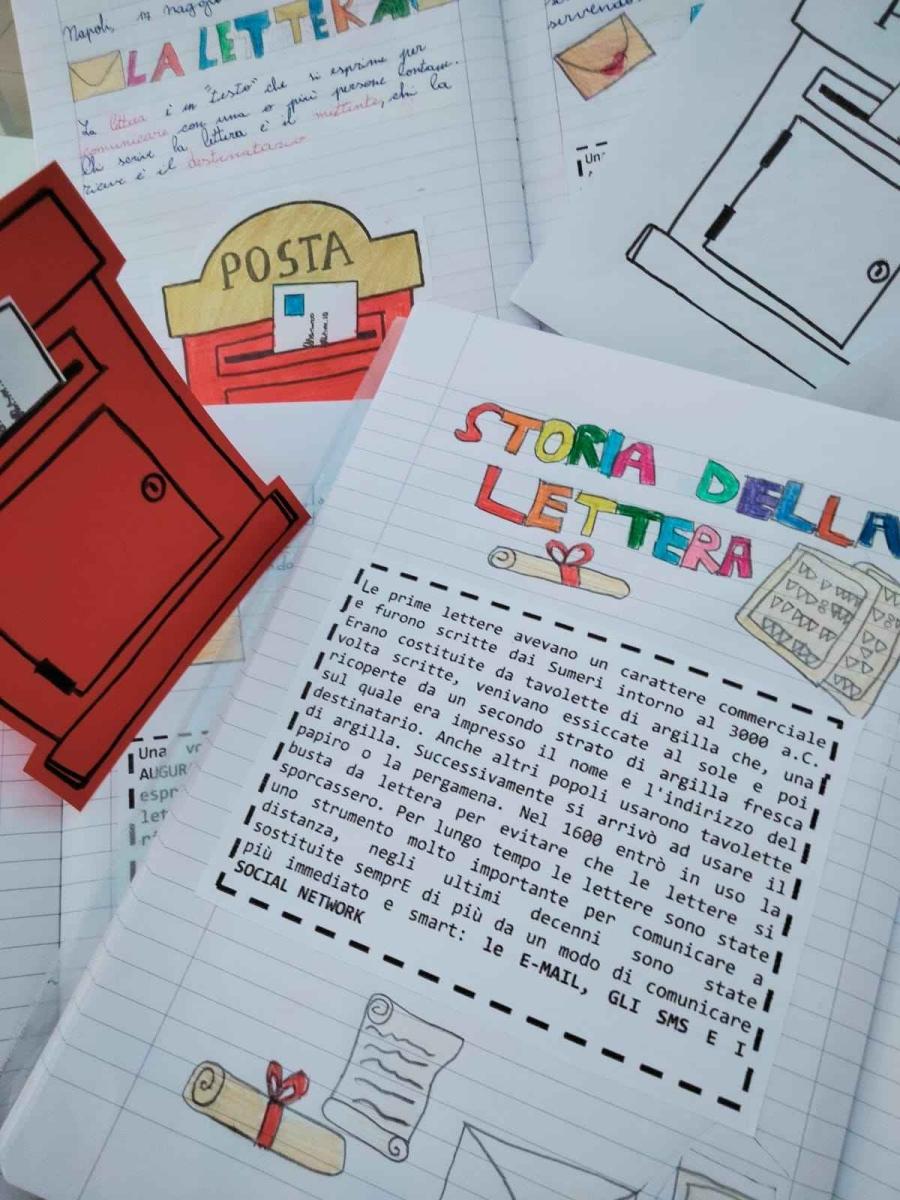 Napoli, 17 maggio
LA LETTERA
La lettera è un "testo" che si esprime per
comunicare con una o più persone lontane.
Chi scrive la lettera è il mittente, chi la
riceve è il destinatario
POSTA
servendo
Un
STORIA DELLA
LETTERA
Le prime lettere avevano un carattere commerciale
e furono scritte dai Sumeri intorno al 3000 a.C.
Erano costituite da tavolette di argilla che, una
volta scritte, venivano essiccate al sole e poi
ricoperte da un secondo strato di argilla fresca
sul quale era impresso il nome e l'indirizzo del
destinatario. Anche altri popoli usarono tavolette
di argilla. Successivamente si arrivò ad usare il
papiro o la pergamena. Nel 1600 entrò in uso la
busta da lettera per evitare che le lettere si
sporcassero. Per lungo tempo le lettere sono state
uno strumento molto importante per comunicare a
distanza, negli ultimi decenni sono state
sostituite semprE di più da un modo di comunicare
più immediato e smart: le E-MAIL, GLI SMS E I
SOCIAL NETWORK
Una vo
AUGUR
espr
let